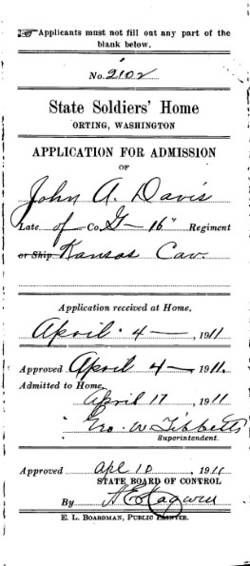 ☞ Applicants must not fill out any part of the
blank below.
No. 2102
State Soldiers' Home
ORTING, WASHINGTON
APPLICATION FOR ADMISSION
OF
John A. Davis
Late of Co. G – 16" Regiment
or Ship Kansas Cav.
Application received at Home.
April 4 —, 1911
Approved April 4 —, 1911.
Admitted to Home,
April 17, 1911
Geo. W. Tibbetts
Superintendent.
Approved Apl 10, 1911
STATE BOARD OF CONTROL
By
E. L. BOARDMAN, PUBLIC PRINTER.